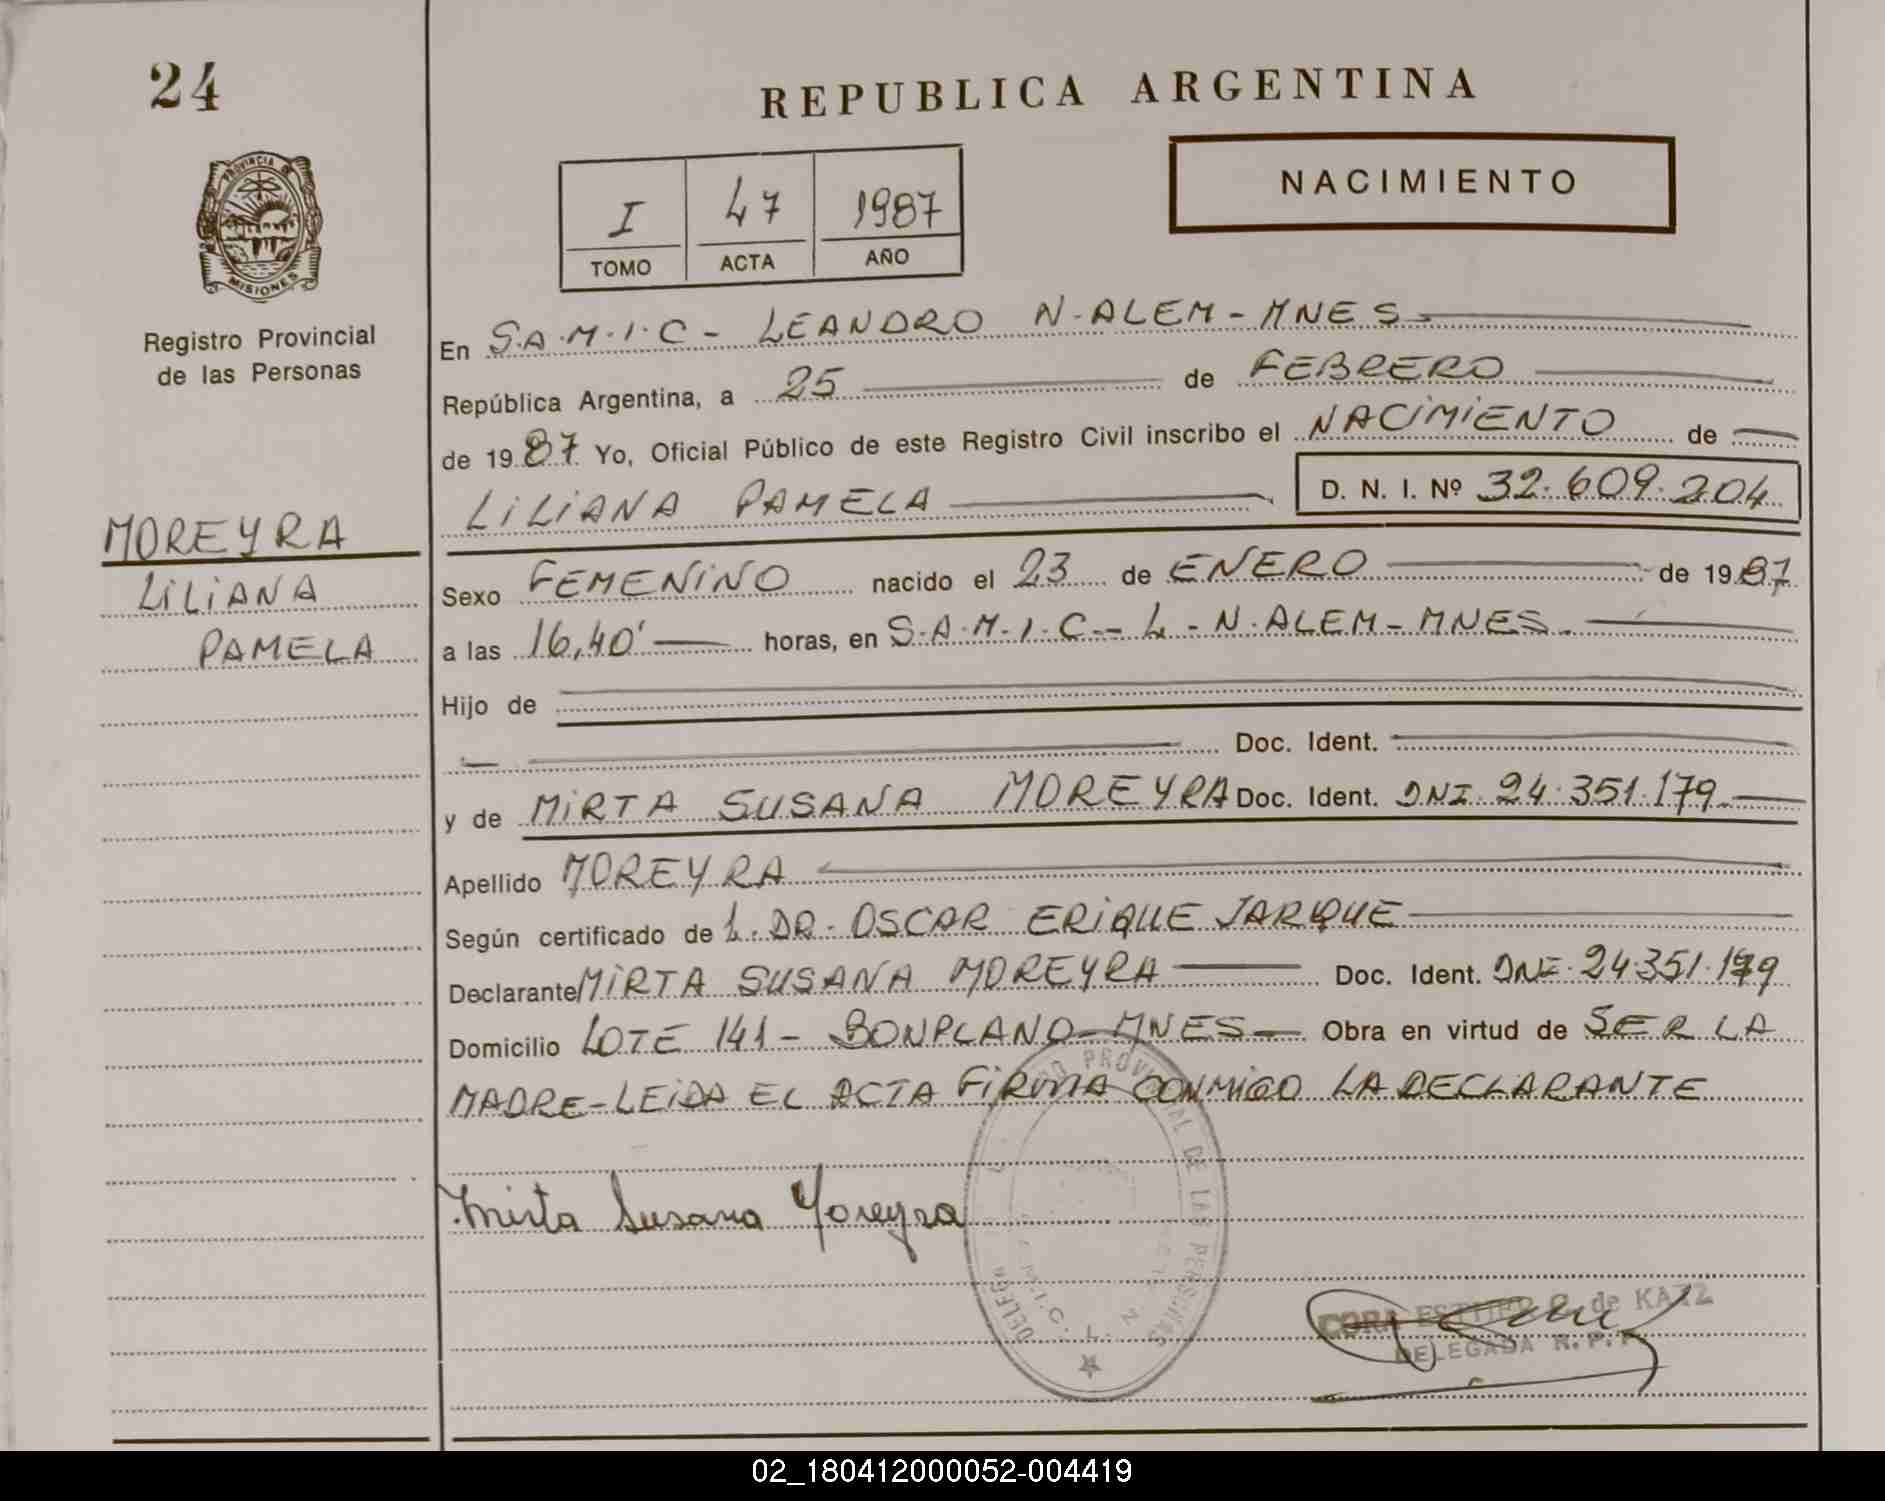 24
REPUBLICA ARGENTINA
NACIMIENTO
I 47 1987
TOMO ACTA AÑO
PROVINCIA DE
MISIONES
Registro Provincial
de las Personas
MOREYRA
LILIANA
PAMELA
En S.A.M.I.C - LEANDRO N. ALEM - MNES
República Argentina, a 25 de FEBRERO
de 1987 Yo, Oficial Público de este Registro Civil inscribo el NACIMIENTO de
LILIANA PAMELA D. N. I. Nº 32.609.204
Sexo FEMENINO nacido el 23 de ENERO de 1987
a las 16,40' horas, en S.A.M.I.C - L - N. ALEM - MNES.
Hijo de
Doc. Ident.
y de MIRTA SUSANA MOREYRA Doc. Ident. DNI. 24.351.179
Apellido MOREYRA
Según certificado de L. DR. OSCAR ERIQUE JARQUE
Declarante MIRTA SUSANA MOREYRA Doc. Ident. DNI. 24.351.179
Domicilio LOTE 141 - BONPLAND - MNES Obra en virtud de SER LA
MADRE - LEIDA EL ACTA FIRMA CONMIGO LA DECLARANTE
Mirta Susana Moreyra
PROVINCIAL DE LAS PERSONAS
CORA ESTHER de KATZ
DELEGADA R.P.P.
02_180412000052-004419